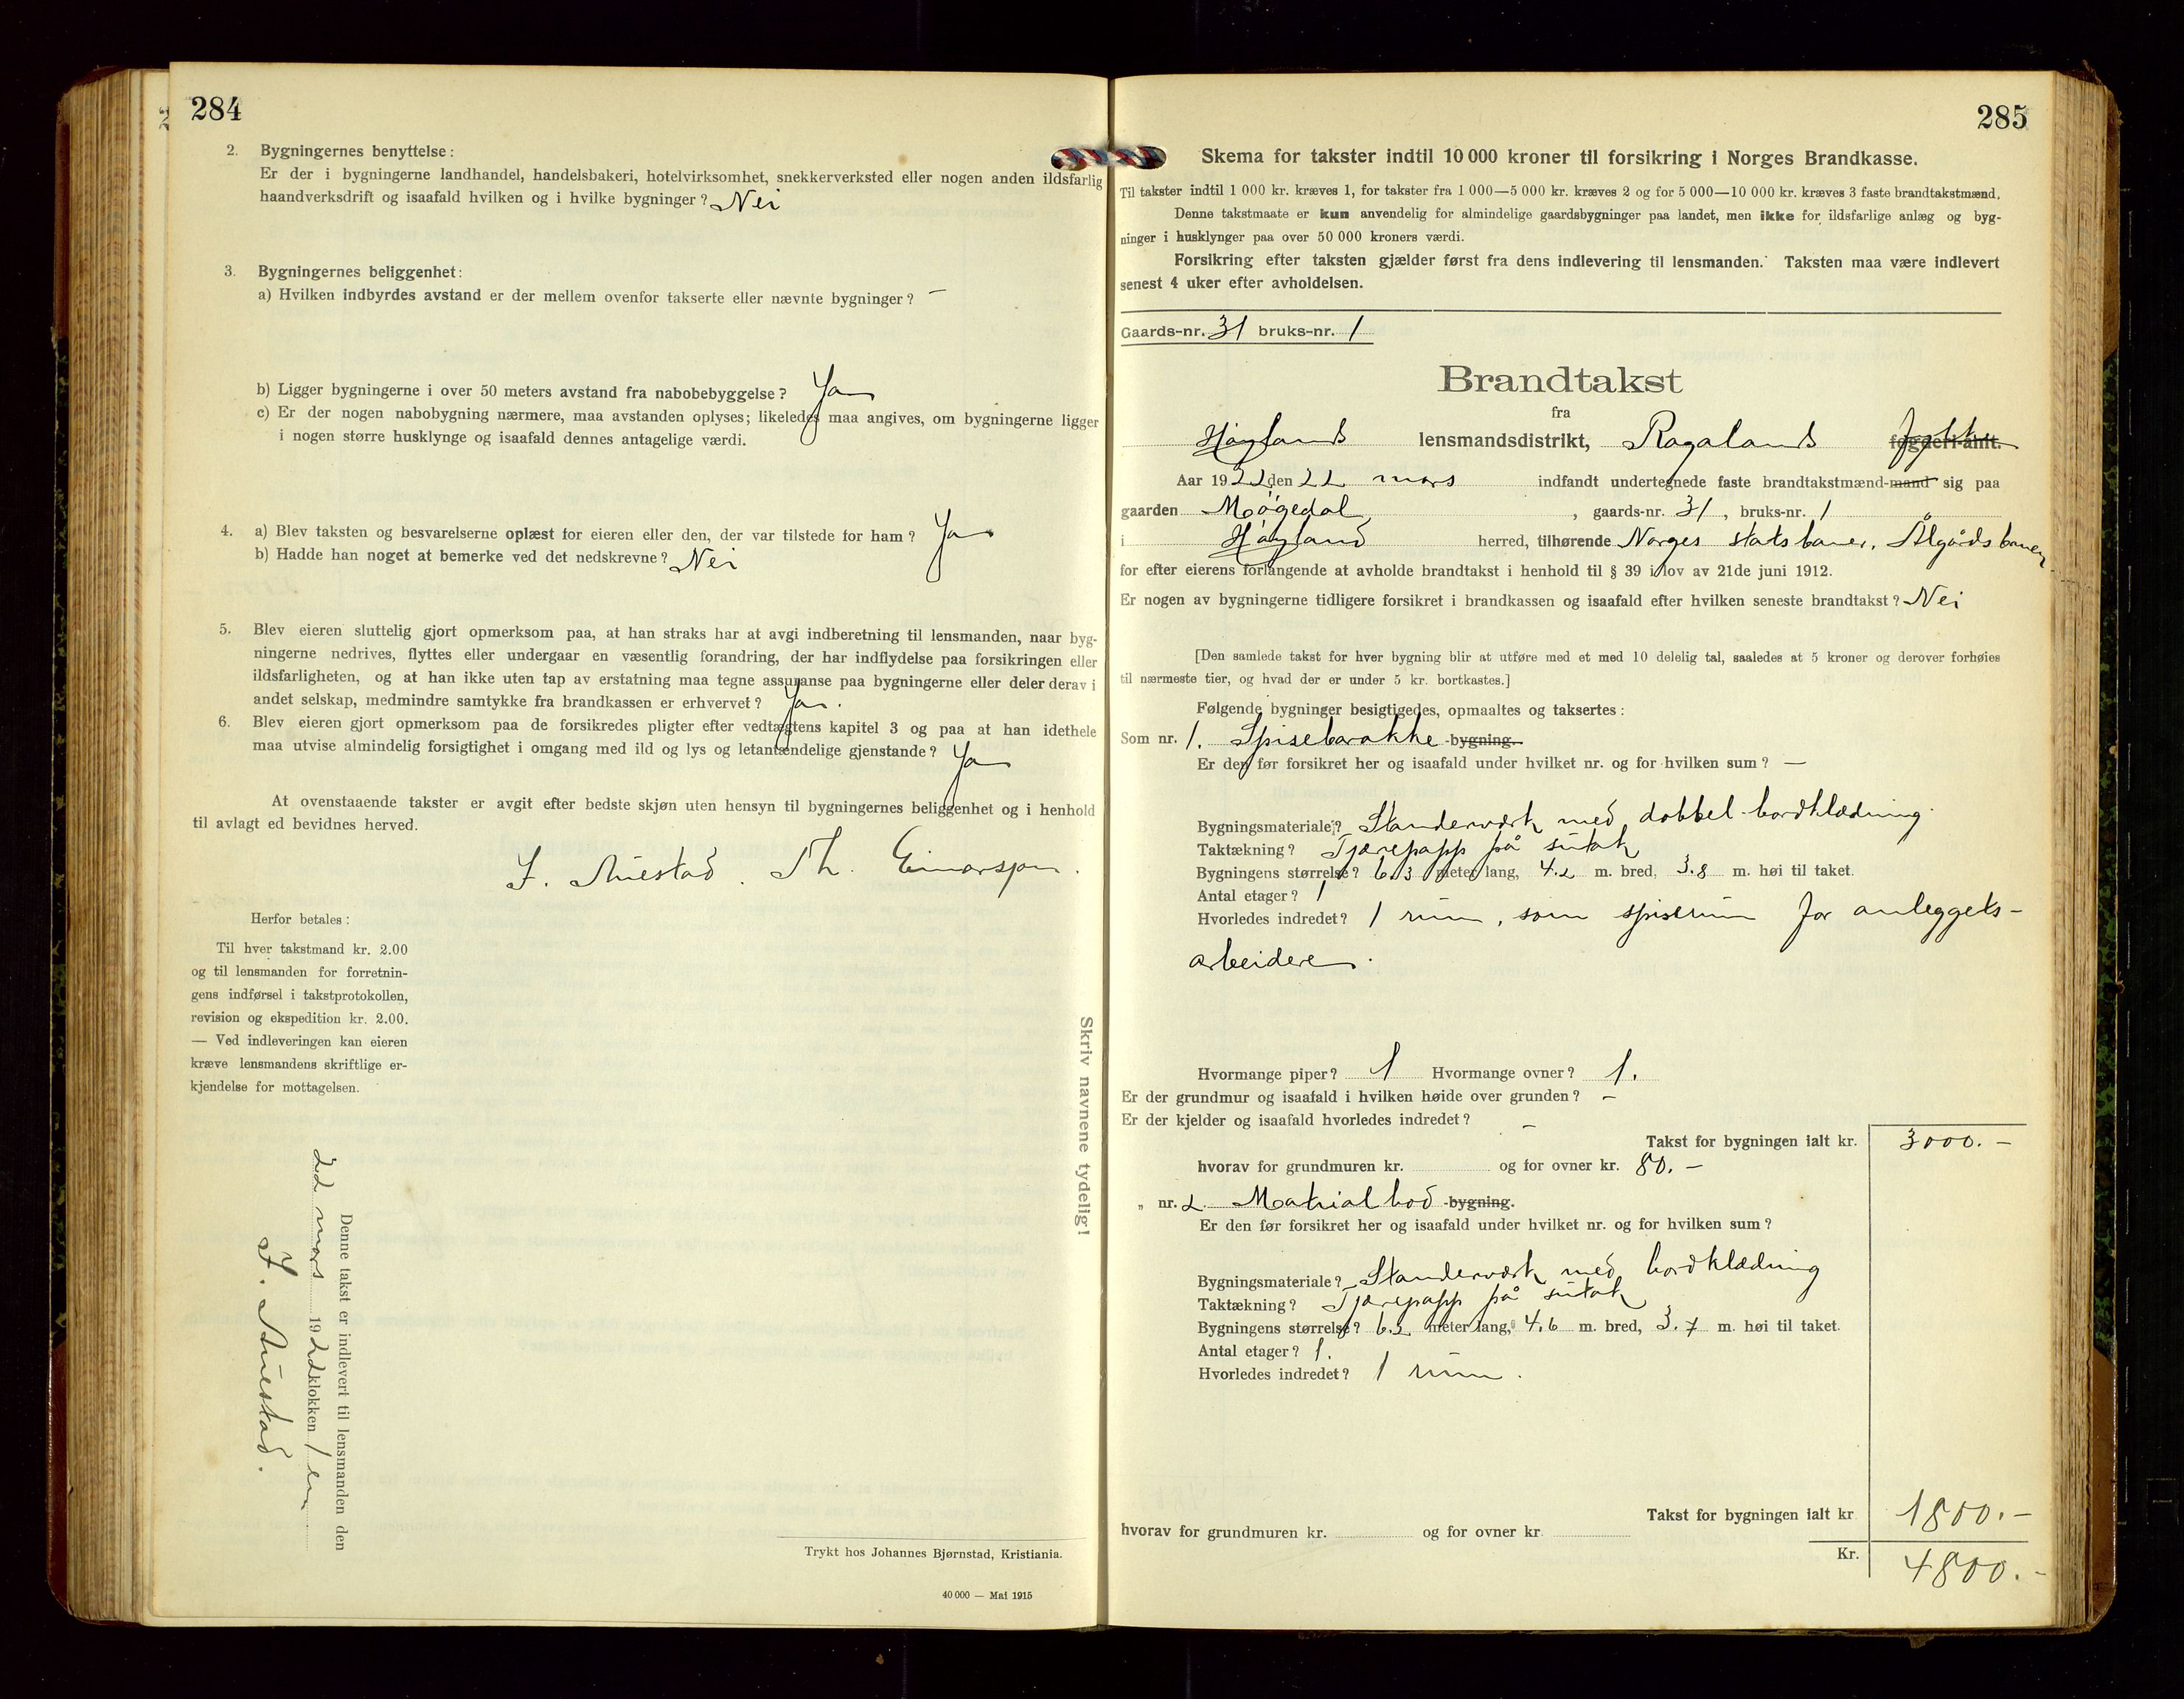 284
2. Bygningernes benyttelse:
Er der i bygningerne landhandel, handelsbakeri, hotelvirksomhet, snekkerverksted eller nogen anden ildsfarlig
haandverksdrift og isaafald hvilken og i hvilke bygninger? Nei
3. Bygningernes beliggenhet:
a) Hvilken indbyrdes avstand er der mellem ovenfor takserte eller nævnte bygninger? —
b) Ligger bygningerne i over 50 meters avstand fra nabobebyggelse? Ja
c) Er der nogen nabobygning nærmere, maa avstanden oplyses; likeledes maa angives, om bygningerne ligger
i nogen større husklynge og isaafald dennes antagelige værdi.
4. a) Blev taksten og besvarelserne oplæst for eieren eller den, der var tilstede for ham? Ja
b) Hadde han noget at bemerke ved det nedskrevne? Nei
5. Blev eieren sluttelig gjort opmerksom paa, at han straks har at avgi indberetning til lensmanden, naar byg-
ningerne nedrives, flyttes eller undergaar en væsentlig forandring, der har indflydelse paa forsikringen eller
ildsfarligheten, og at han ikke uten tap av erstatning maa tegne assuranse paa bygningerne eller deler derav i
andet selskap, medmindre samtykke fra brandkassen er erhvervet? Ja.
6. Blev eieren gjort opmerksom paa de forsikredes pligter efter vedtægtens kapitel 3 og paa at han idethele
maa utvise almindelig forsigtighet i omgang med ild og lys og letantændelige gjenstande? Ja
At ovenstaaende takster er avgit efter bedste skjøn uten hensyn til bygningernes beliggenhet og i henhold
til avlagt ed bevidnes herved.
J. Auestad. Th. Einarsen.
Herfor betales:
Til hver takstmand kr. 2.00
og til lensmanden for forretnin-
gens indførsel i takstprotokollen,
revision og ekspedition kr. 2.00.
— Ved indleveringen kan eieren
kræve lensmandens skriftlige er-
kjendelse for mottagelsen.
Skriv navnene tydelig!
Denne takst er indlevert til lensmanden den
22 mars 1922 klokken 1 em.
J. Auestad.
Trykt hos Johannes Bjørnstad, Kristiania.
40 000 — Mai 1915
285
Skema for takster indtil 10 000 kroner til forsikring i Norges Brandkasse.
Til takster indtil 1 000 kr. kræves 1, for takster fra 1 000—5 000 kr. kræves 2 og for 5 000—10 000 kr. kræves 3 faste brandtakstmænd.
Denne takstmaate er kun anvendelig for almindelige gaardsbygninger paa landet, men ikke for ildsfarlige anlæg og byg-
ninger i husklynger paa over 50 000 kroners værdi.
Forsikring efter taksten gjælder først fra dens indlevering til lensmanden. Taksten maa være indlevert
senest 4 uker efter avholdelsen.
Gaards-nr. 31 bruks-nr. 1
Brandtakst
fra
Høylands lensmandsdistrikt, Rogalands fylke fogderi-amt.
Aar 1922 den 22 mars indfandt undertegnede faste brandtakstmænd-mand sig paa
gaarden Møgedal, gaards-nr. 31, bruks-nr. 1
i Høyland herred, tilhørende Norges statsbaner, Ålgårdsbanen
for efter eierens forlangende at avholde brandtakst i henhold til § 39 i lov av 21de juni 1912.
Er nogen av bygningerne tidligere forsikret i brandkassen og isaafald efter hvilken seneste brandtakst? Nei
[Den samlede takst for hver bygning blir at utføre med et med 10 delelig tal, saaledes at 5 kroner og derover forhøies
til nærmeste tier, og hvad der er under 5 kr. bortkastes.]
Følgende bygninger besigtigedes, opmaaltes og taksertes:
Som nr. 1. Spisebarakke -bygning.
Er den før forsikret her og isaafald under hvilket nr. og for hvilken sum? —
Bygningsmateriale? Standerværk med dobbel bordklædning
Taktækning? Tjærepapp på sutak
Bygningens størrelse? 6.3 meter lang, 4.2 m. bred, 3.8 m. høi til taket.
Antal etager? 1
Hvorledes indredet? 1 rum, som spiserum for anleggets-
arbeidere.
Hvormange piper? 1 Hvormange ovner? 1.
Er der grundmur og isaafald i hvilken høide over grunden? —
Er der kjelder og isaafald hvorledes indredet? —
Takst for bygningen ialt kr. 3000.—
hvorav for grundmuren kr. og for ovner kr. 80.—
„ nr. 2. Matrialbod -bygning.
Er den før forsikret her og isaafald under hvilket nr. og for hvilken sum?
Bygningsmateriale? Standerværk med bordklædning
Taktækning? Tjærepapp på sutak
Bygningens størrelse? 6.2 meter lang, 4.6 m. bred, 3.7 m. høi til taket.
Antal etager? 1.
Hvorledes indredet? 1 rum.
Takst for bygningen ialt kr 1800.—
hvorav for grundmuren kr. og for ovner kr.
Kr. 4800.—